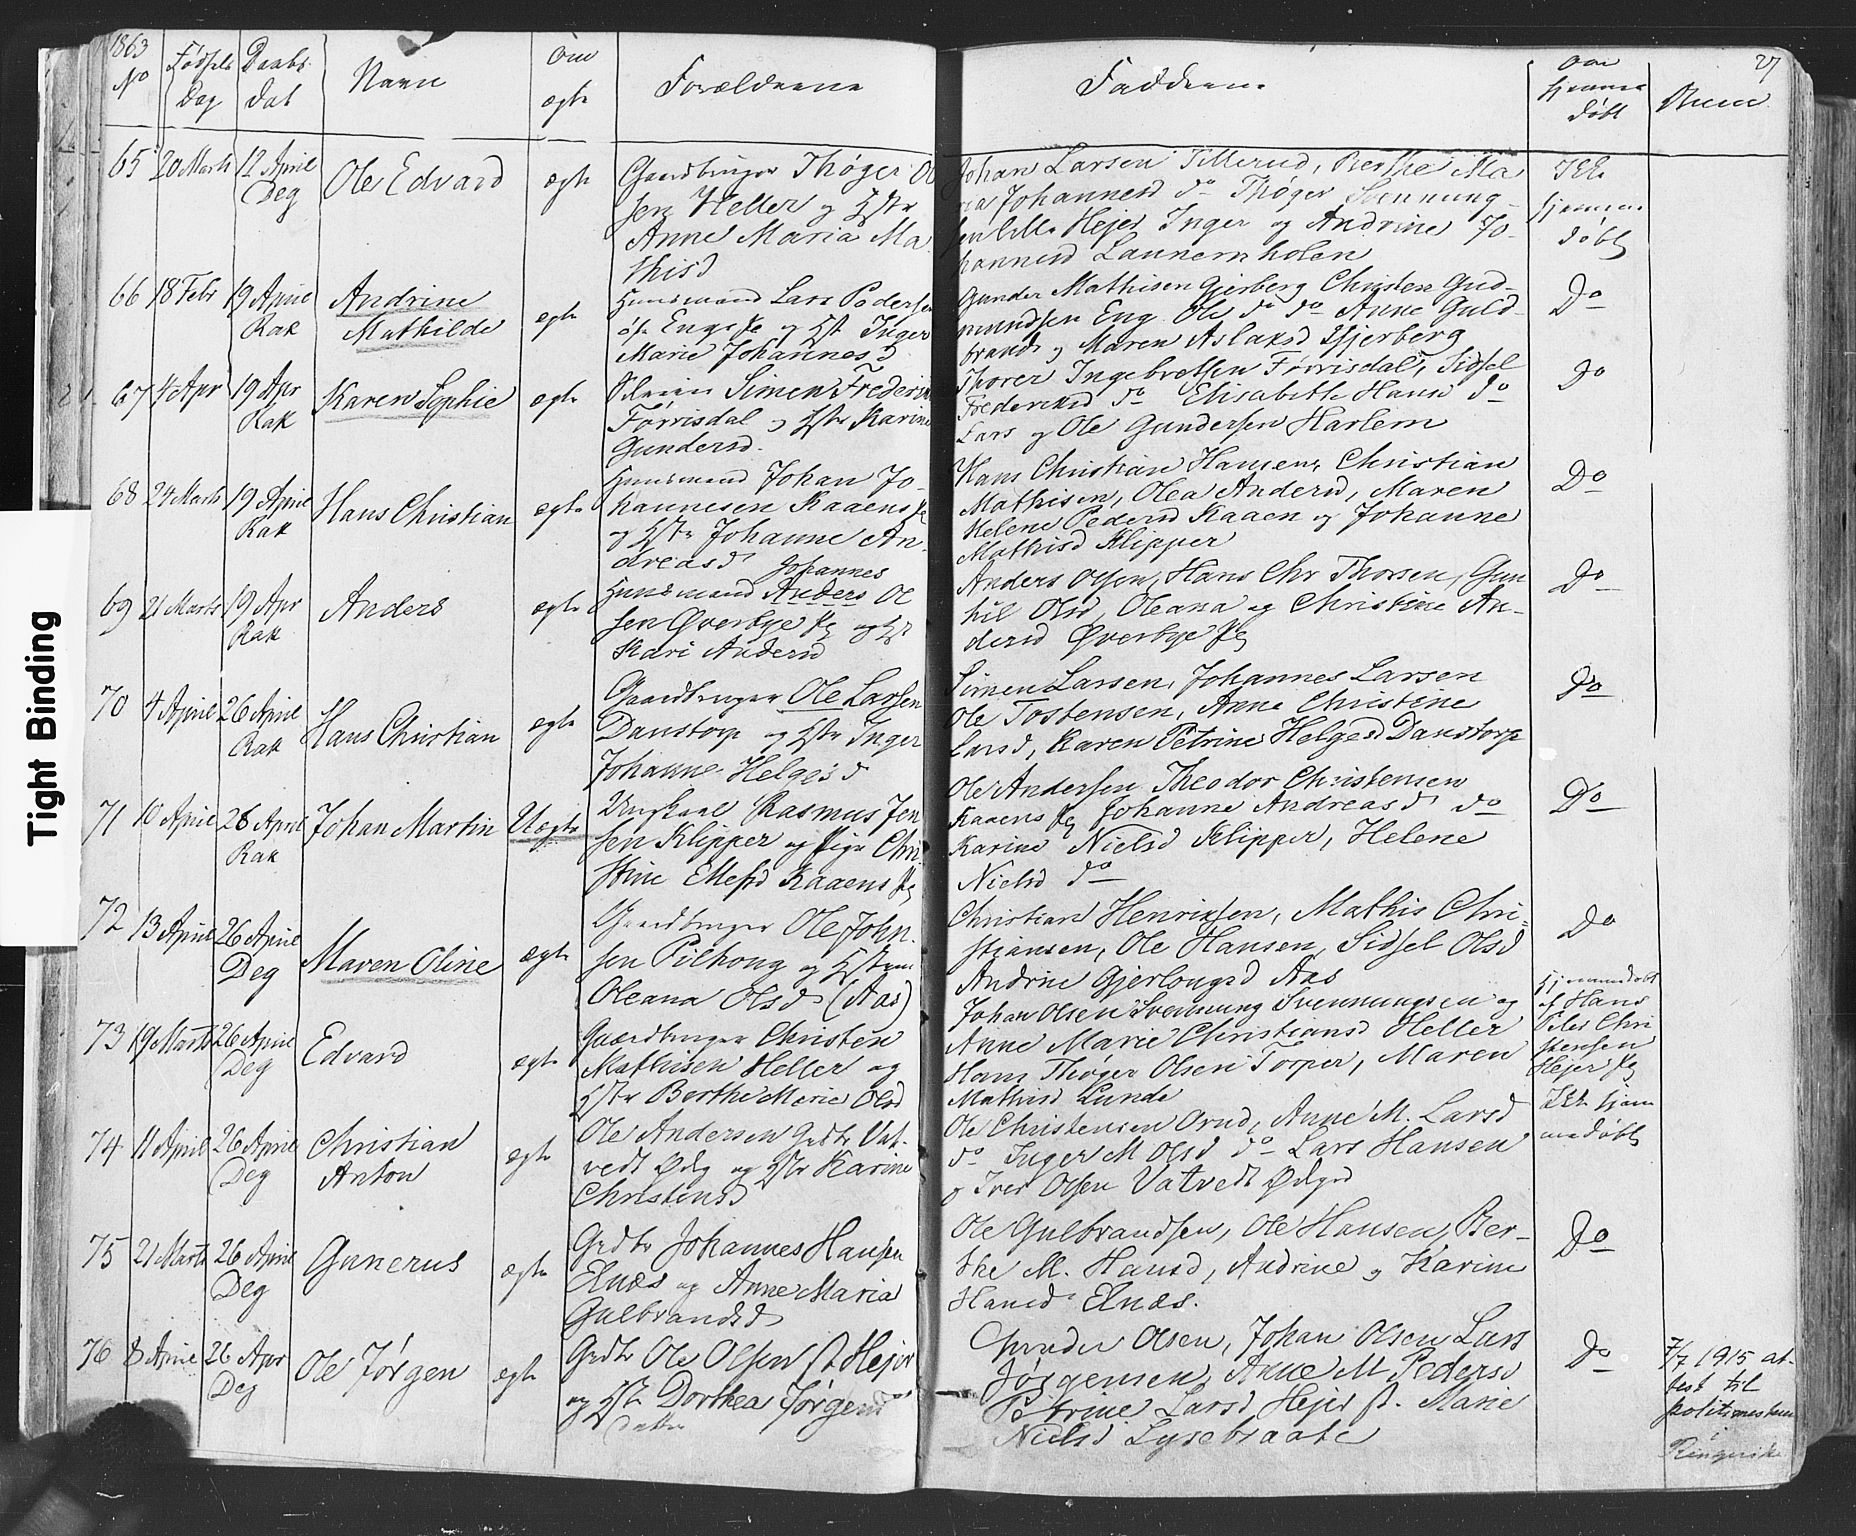 1863
No
Fødsels
Dag
Daabs
dat
Navn
om
ægte
Forældrene
Fadderne
om
hjemme
døbt
27
Tight Binding
65 20 Marts 12 April
Deg
Ole Edvard
ægte
Gaardbruger Thøger Ol
sen Heller og Hstr
Anne Maria Ma
thisd
Johan Larsen Tillerud, Berthe Ma
ria Johannesd do Thøger Svennung
sen lille Hejer Inger og Andrine Jo-
hannesd
Ikke
hjemme
døbt
66 18 Febr 19 April
Rak
Andrine
Mathilde
ægte
Huusmand Lars Pedersen
Inger
Marie Johannesd
Gunder Mathisen Gjerberg Christen Gud-
mundsen Eng Ole do do Anne Guld
brands og Maren Aslaksd Gjerberg
Do
67 4 Apr 19 Apr
Rak
Karen Sophie
ægte
Simen Frederik
Førrisdal og Hstr Karine
Gundersd.
Thorer Ingebretsen Førrisdal, Sidsel
Frederiksd do Elisabeth Hansd do
Lars og Ole Gundersen Harlem
Do
68 24 Marts 19 April
Rak
Hans Christian
ægte
Huusmand Johan Jo-
hannesen Kaaens
og Hstr Johanne An-
dreasd
Hans Christian Hansen, Christian
Mathisen, Olea Andersd, Maren
Helene Pedersd Kaaen og Johanne
Mathisd Klipper
Do
69 21 Marts 19 Apr
Rak
Anders
ægte
Johannes
Huusmand Anders Ol
sen Øverbye Eje og Hst
Kari Andersd
Anders Olsen, Hans Chr Thorsen, Gun
hil Olsd, Oleana og Christine An-
dersd Øverbye Eje
Do
70 4 April 26 April
Rak
Hans Christian
ægte
Gaardbruger Ole Larsen
Danstorp og Hstr Inger
Johanne Helgesd
Simen Larsen, Johannes Larsen
Ole Tostensen, Anne Christine
Larsd, Karen Petrine Helgesd Danstorp
Do
71 10 April 26 April
Rak
Johan Martin
Uægte
Ungkarl Rasmus Jen
sen Klipper og Pige Chri
stine Kaaens
Ole Andersen Theodor Christensen
Kaaens Johanne Andreasd do
Karine Nielsd Klipper, Helene
Nielsd do
Do
72 13 April 26 April
Deg
Maren Oline
ægte
Gaardbruger Ole John
sen Pilhoug og Hstru
Oleana Olsd (Aas)
Christian Henriksen, Mathis Chri-
stiansen, Ole Hansen, Sidsel Olsd
Andrine Gjerlougsd Aas
Do
73 19 Marts 26 April
Deg
Edvard
ægte
Gaardbruger Christen
Mathisen Heller og
Hstr Berthe Marie Olsd
Johan Olsen Svennung Svennungsen og
Anne Marie Christiansd Heller
Hans Thøger Olsen Torper, Maren
Mathisd Lunde
hjemmedøbt
af Hans
Peter Chri
stensen
Hejer
74 11 April 26 April
Deg
Christian
Anton
ægte
Ole Andersen Grdbr Vat-
vedt Ødeg og Hstr Karine
Christensd
Ole Christensen Orud, Anne M. Larsd
do Inger M Olsd do Lars Hansen
og Iver Olsen Vatvedt Ødegd
Ikke hjem
medøbt
75 21 Marts 26 April
Deg
Gunerus
ægte
Grdbr Johannes Hansen
Elnæs og Anne Maria
Gulbrandsd
Ole Gulbrandsen, Ole Hansen, Ber-
the M. Hansd, Andrine og Karine
Hansd Elnæs.
Do
76 8 April 26 Apr
Deg
Ole Jørgen
ægte
Grdbr Ole Olsen st Hejer
og Hstr Dorthea Jørgens
datter
Gunder Olsen, Johan Olsen Lars
Jørgensen, Anne M Pedersd
Petrine Larsd Hejer st. Marie
Nielsd Lysebraate
Do
7/7 1915 at-
test til
politimesteren
i
Ringerike